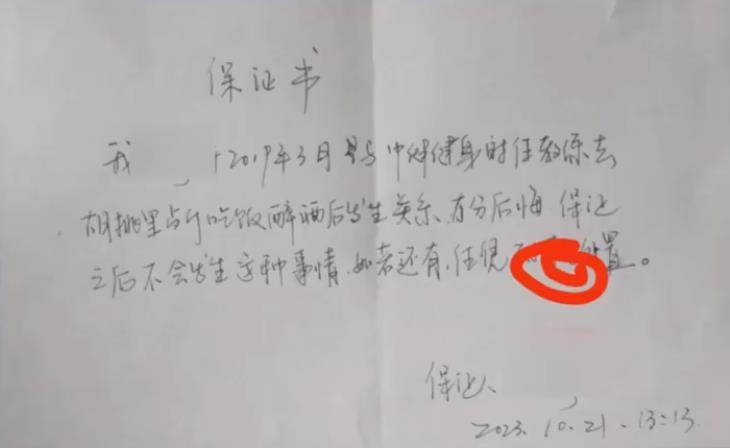 保证书
我 于2019年3月与中健健身时任教练去
胡桃里吃饭醉酒后发生关系、万分后悔 保证
之后不会发生这种事情、如若还有、任凭 处置。
保证人、
2023. 10. 21. 13:13